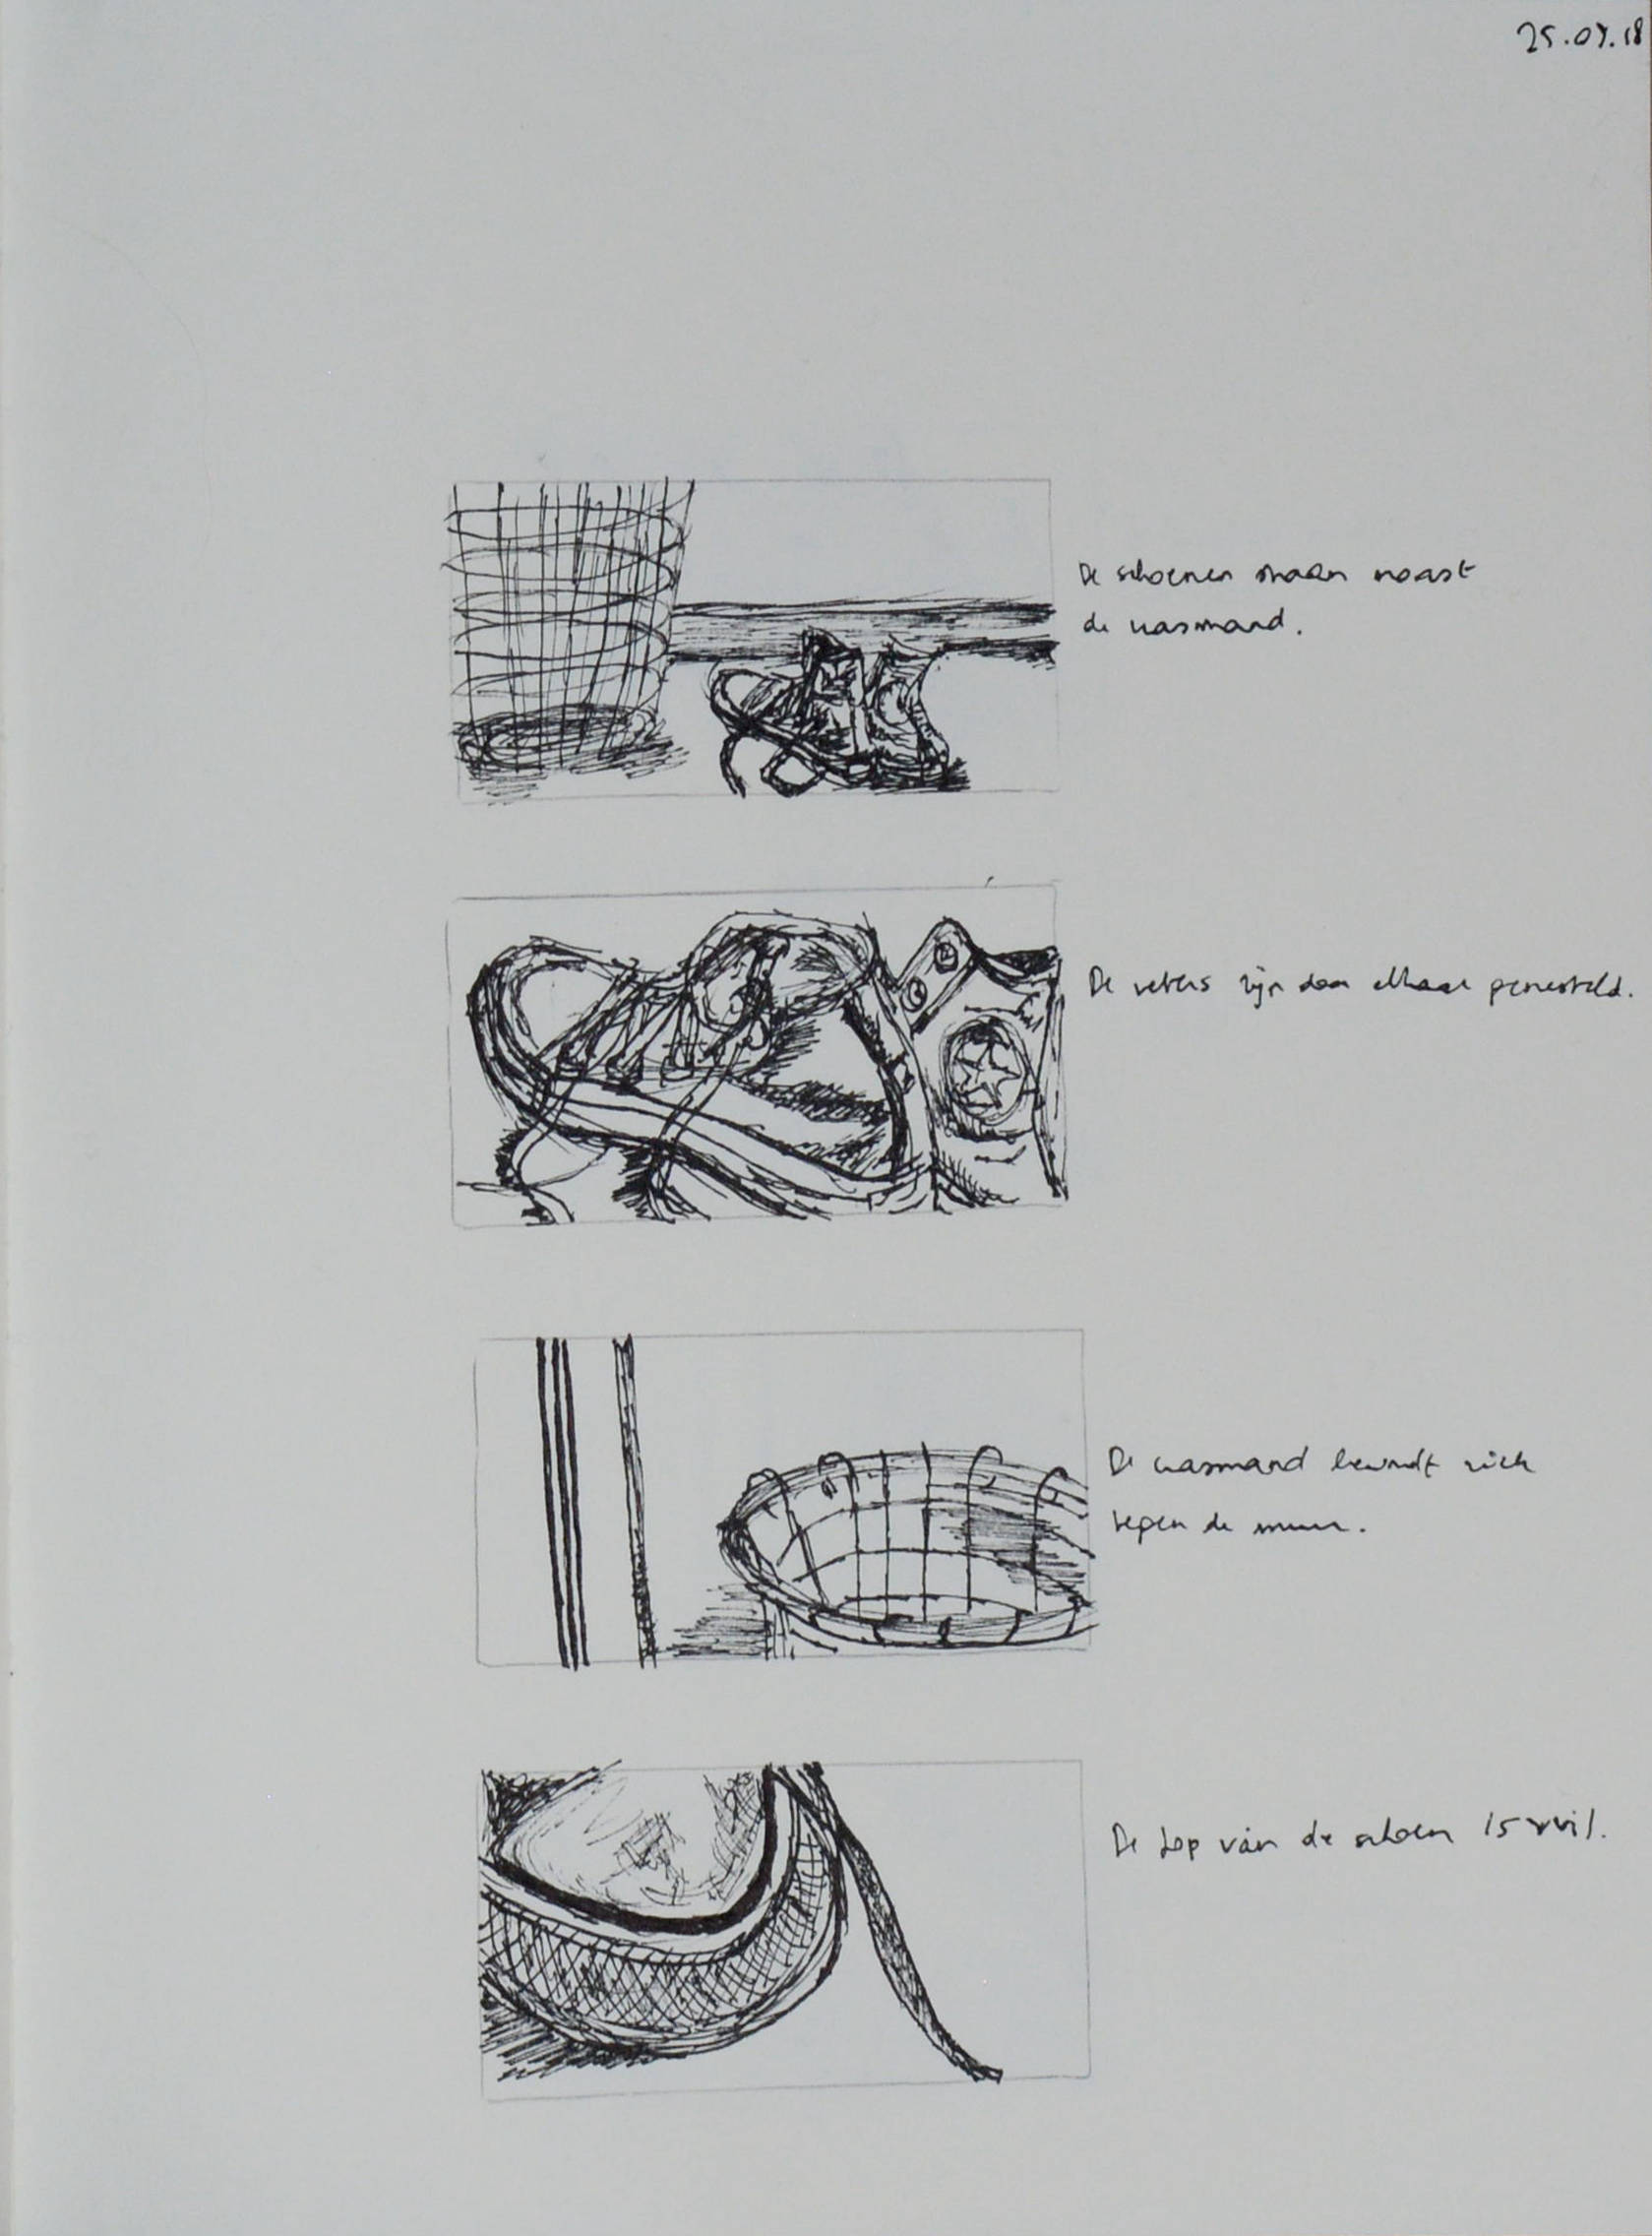 25.07.18
De schoenen staan naast
de wasmand.
De veters zijn door elkaar genesteld.
De wasmand bevindt zich
tegen de muur.
De top van de schoen is vuil.